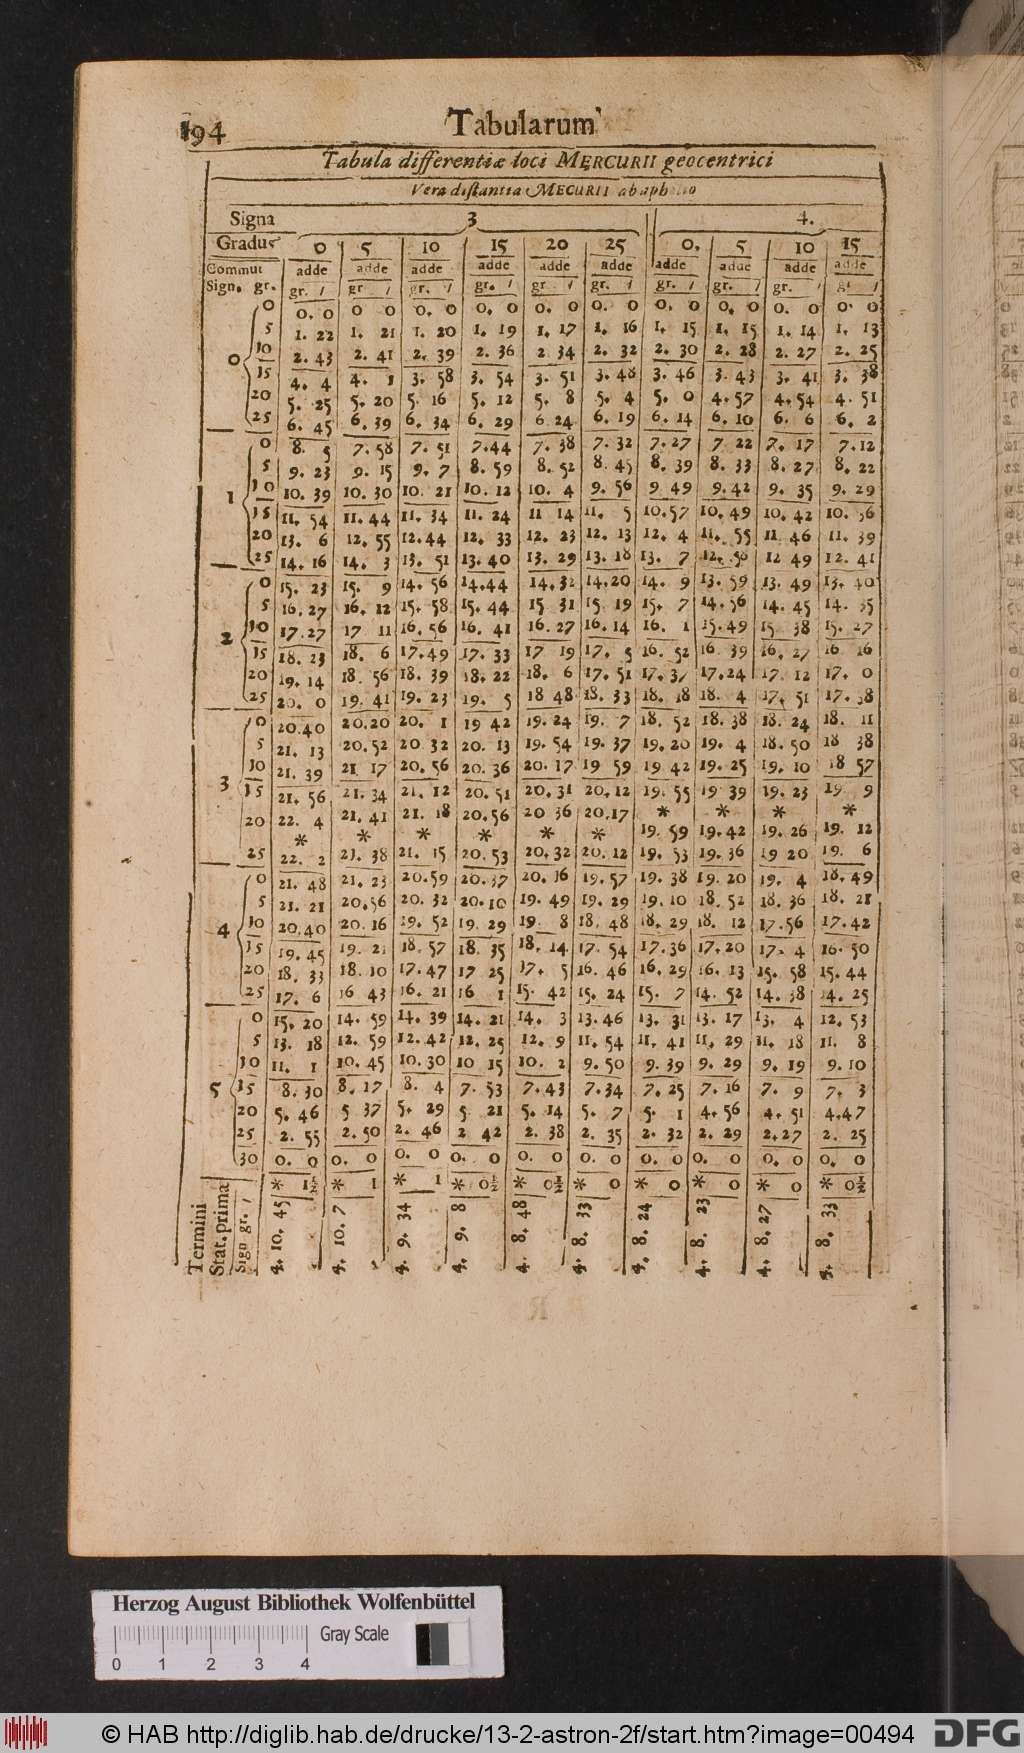 194 Tabularum
Tabula differentiæ loci MERCURII geocentrici
Vera distantia MECURII ab aphelio
Signa 3 4.
Gradus 0 5 10 15 20 25 0. 5 10 15
Commut adde adde adde adde adde adde adde adde adde adde
Sign. gr. gr. / gr / gr. / gr. / gr / gr. / gr. / gr. / gr. / gr /
0 0 0. 0 0 0 0. 0 0. 0 0. 0 0. 0 0. 0 0. 0 0. 0 0. 0
5 1. 22 1. 21 1. 20 1. 19 1. 17 1. 16 1. 15 1. 15 1. 14 1. 13
10 2. 43 2. 41 2. 39 2. 36 2 34 2. 32 2. 30 2. 28 2. 27 2. 25
15 4. 4 4. 1 3. 58 3. 54 3. 51 3. 48 3. 46 3. 43 3. 41 3. 38
20 5. 25 5. 20 5. 16 5. 12 5. 8 5. 4 5. 0 4. 57 4. 54 4. 51
25 6. 45 6. 39 6. 34 6. 29 6 24 6. 19 6. 14 6. 10 6. 6 6. 2
1 0 8. 5 7. 58 7. 51 7. 44 7. 38 7. 32 7. 27 7 22 7. 17 7. 12
5 9. 23 9. 15 9. 7 8. 59 8. 52 8. 45 8. 39 8. 33 8. 27 8. 22
10 10. 39 10. 30 10. 21 10. 12 10. 4 9. 56 9 49 9. 42 9. 35 9. 29
15 11. 54 11. 44 11. 34 11. 24 11 14 11. 5 10. 57 10. 49 10. 42 10. 36
20 13. 6 12. 55 12. 44 12. 33 12. 23 12. 13 12. 4 11. 55 11 46 11. 39
25 14. 16 14. 3 13. 51 13. 40 13. 29 13. 18 13. 7 12. 58 12 49 12. 41
2 0 15. 23 15. 9 14. 56 14. 44 14. 32 14. 20 14. 9 13. 59 13. 49 13. 40
5 16. 27 16. 12 15. 58 15. 44 15 31 15 19 15. 7 14. 56 14. 45 14. 35
10 17. 27 17 11 16. 56 16. 41 16. 27 16. 14 16. 1 15. 49 15 38 15. 27
15 18. 23 18. 6 17. 49 17. 33 17 19 17. 5 16. 52 16 39 16. 27 16 16
20 19. 14 18. 56 18. 39 18. 22 18. 6 17. 51 17. 37 17. 24 17. 12 17. 0
25 20. 0 19. 41 19. 23 19. 5 18 48 18. 33 18. 18 18. 4 17. 51 17. 38
3 0 20. 40 20. 20 20. 1 19 42 19. 24 19. 7 18. 52 18. 38 18. 24 18. 11
5 21. 13 20. 52 20 32 20. 13 19. 54 19. 37 19. 20 19. 4 18. 50 18 38
10 21. 39 21 17 20. 56 20. 36 20. 17 19 59 19 42 19. 25 19. 10 18 57
15 21. 56 21. 34 21. 12 20. 51 20. 31 20. 12 19. 55 19 39 19. 23 19 9
20 22. 4 21. 41 21. 18 20. 56 20 36 20. 17 * 19. 59 * 19. 42 * 19. 26 * 19. 12
* * * * * *
25 22. 2 21. 38 21. 15 20. 53 20. 32 20. 12 19. 53 19. 36 19 20 19. 6
4 0 21. 48 21. 23 20. 59 20. 37 20. 16 19. 57 19. 38 19. 20 19. 4 18. 49
5 21. 21 20. 56 20. 32 20. 10 19. 49 19. 29 19. 10 18. 52 18. 36 18. 21
10 20. 40 20. 16 19. 52 19. 29 19 8 18. 48 18. 29 18. 12 17. 56 17. 42
15 19. 45 19. 21 18. 57 18. 35 18. 14 17. 54 17. 36 17. 20 17. 4 16. 50
20 18. 33 18. 10 17. 47 17 25 17. 5 16. 46 16. 29 16. 13 15. 58 15. 44
25 17. 6 16 43 16. 21 16 1 15. 42 15. 24 15. 7 14. 52 14. 38 14. 25
5 0 15. 20 14. 59 14. 39 14. 21 14. 3 13. 46 13. 31 13. 17 13. 4 12. 53
5 13. 18 12. 59 12. 42 12. 25 12. 9 11. 54 11. 41 11. 29 11. 18 11. 8
10 11. 1 10. 45 10. 30 10 15 10. 2 9. 50 9. 39 9. 29 9. 19 9. 10
15 8. 30 8. 17 8. 4 7. 53 7. 43 7. 34 7. 25 7. 16 7. 9 7. 3
20 5. 46 5 37 5. 29 5 21 5. 14 5. 7 5. 1 4. 56 4. 51 4. 47
25 2. 55 2. 50 2. 46 2 42 2. 38 2. 35 2. 32 2. 29 2. 27 2. 25
30 0. 0 0. 0 0. 0 0. 0 0. 0 0. 0 0. 0 0. 0 0. 0 0. 0
* 1½ * 1 * 1 * 0½ * 0½ * 0 * 0 * 0 * 0 * 0½
Termini
Stat. prima
Sign gr. /
4. 10. 45 4. 10. 7 4. 9. 34 4. 9. 8 4. 8. 48 4. 8. 33 4. 8. 24 4. 8. 23 4. 8. 27 4. 8. 33
Herzog August Bibliothek Wolfenbüttel
Gray Scale
0 1 2 3 4
© HAB http://diglib.hab.de/drucke/13-2-astron-2f/start.htm?image=00494
DFG